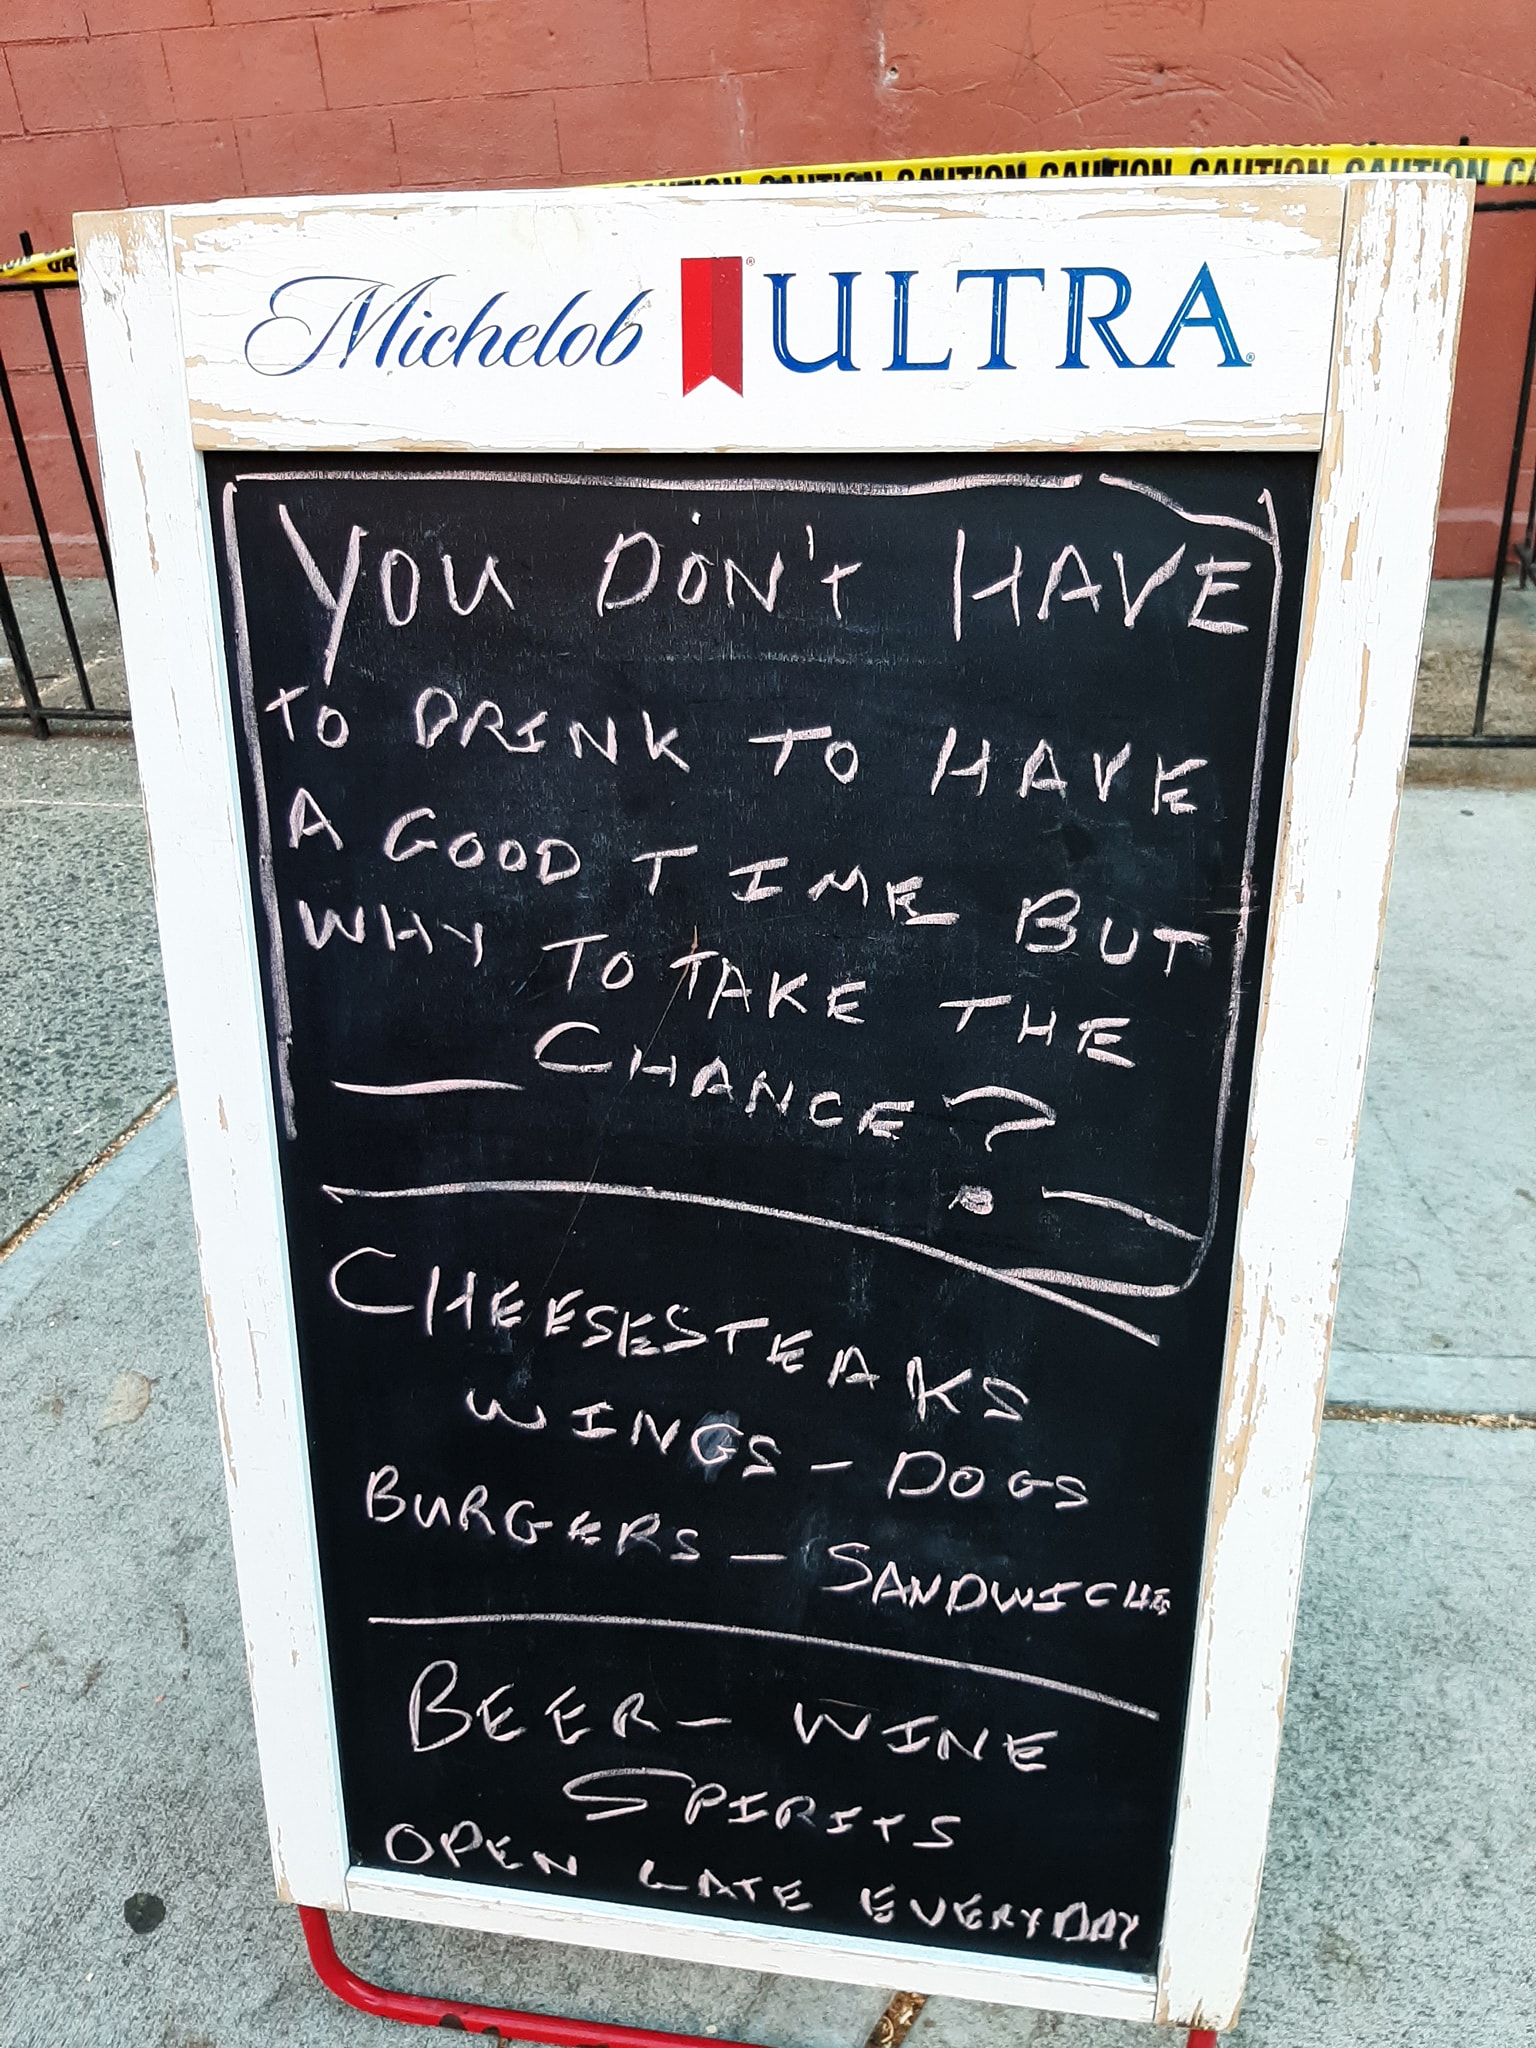 CAUTION CAUTION CAUTION CAUTION CAUTION CAUTION CA
CA
Michelob ULTRA
YOU DON'T HAVE
TO DRINK TO HAVE
A GOOD TIME BUT
WHY TO TAKE THE
CHANCE?
CHEESESTEAKS
WINGS - DOGS
BURGERS - SANDWICHES
BEER - WINE
SPIRITS
OPEN LATE EVERYDAY